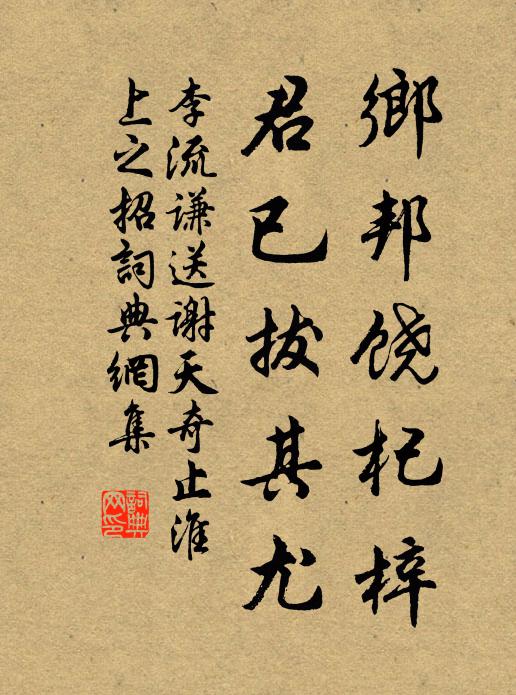 鄉邦饒杞梓
君已拔其尤
李流謙送謝天奇止淮
上之招詞典網集
詞典网印